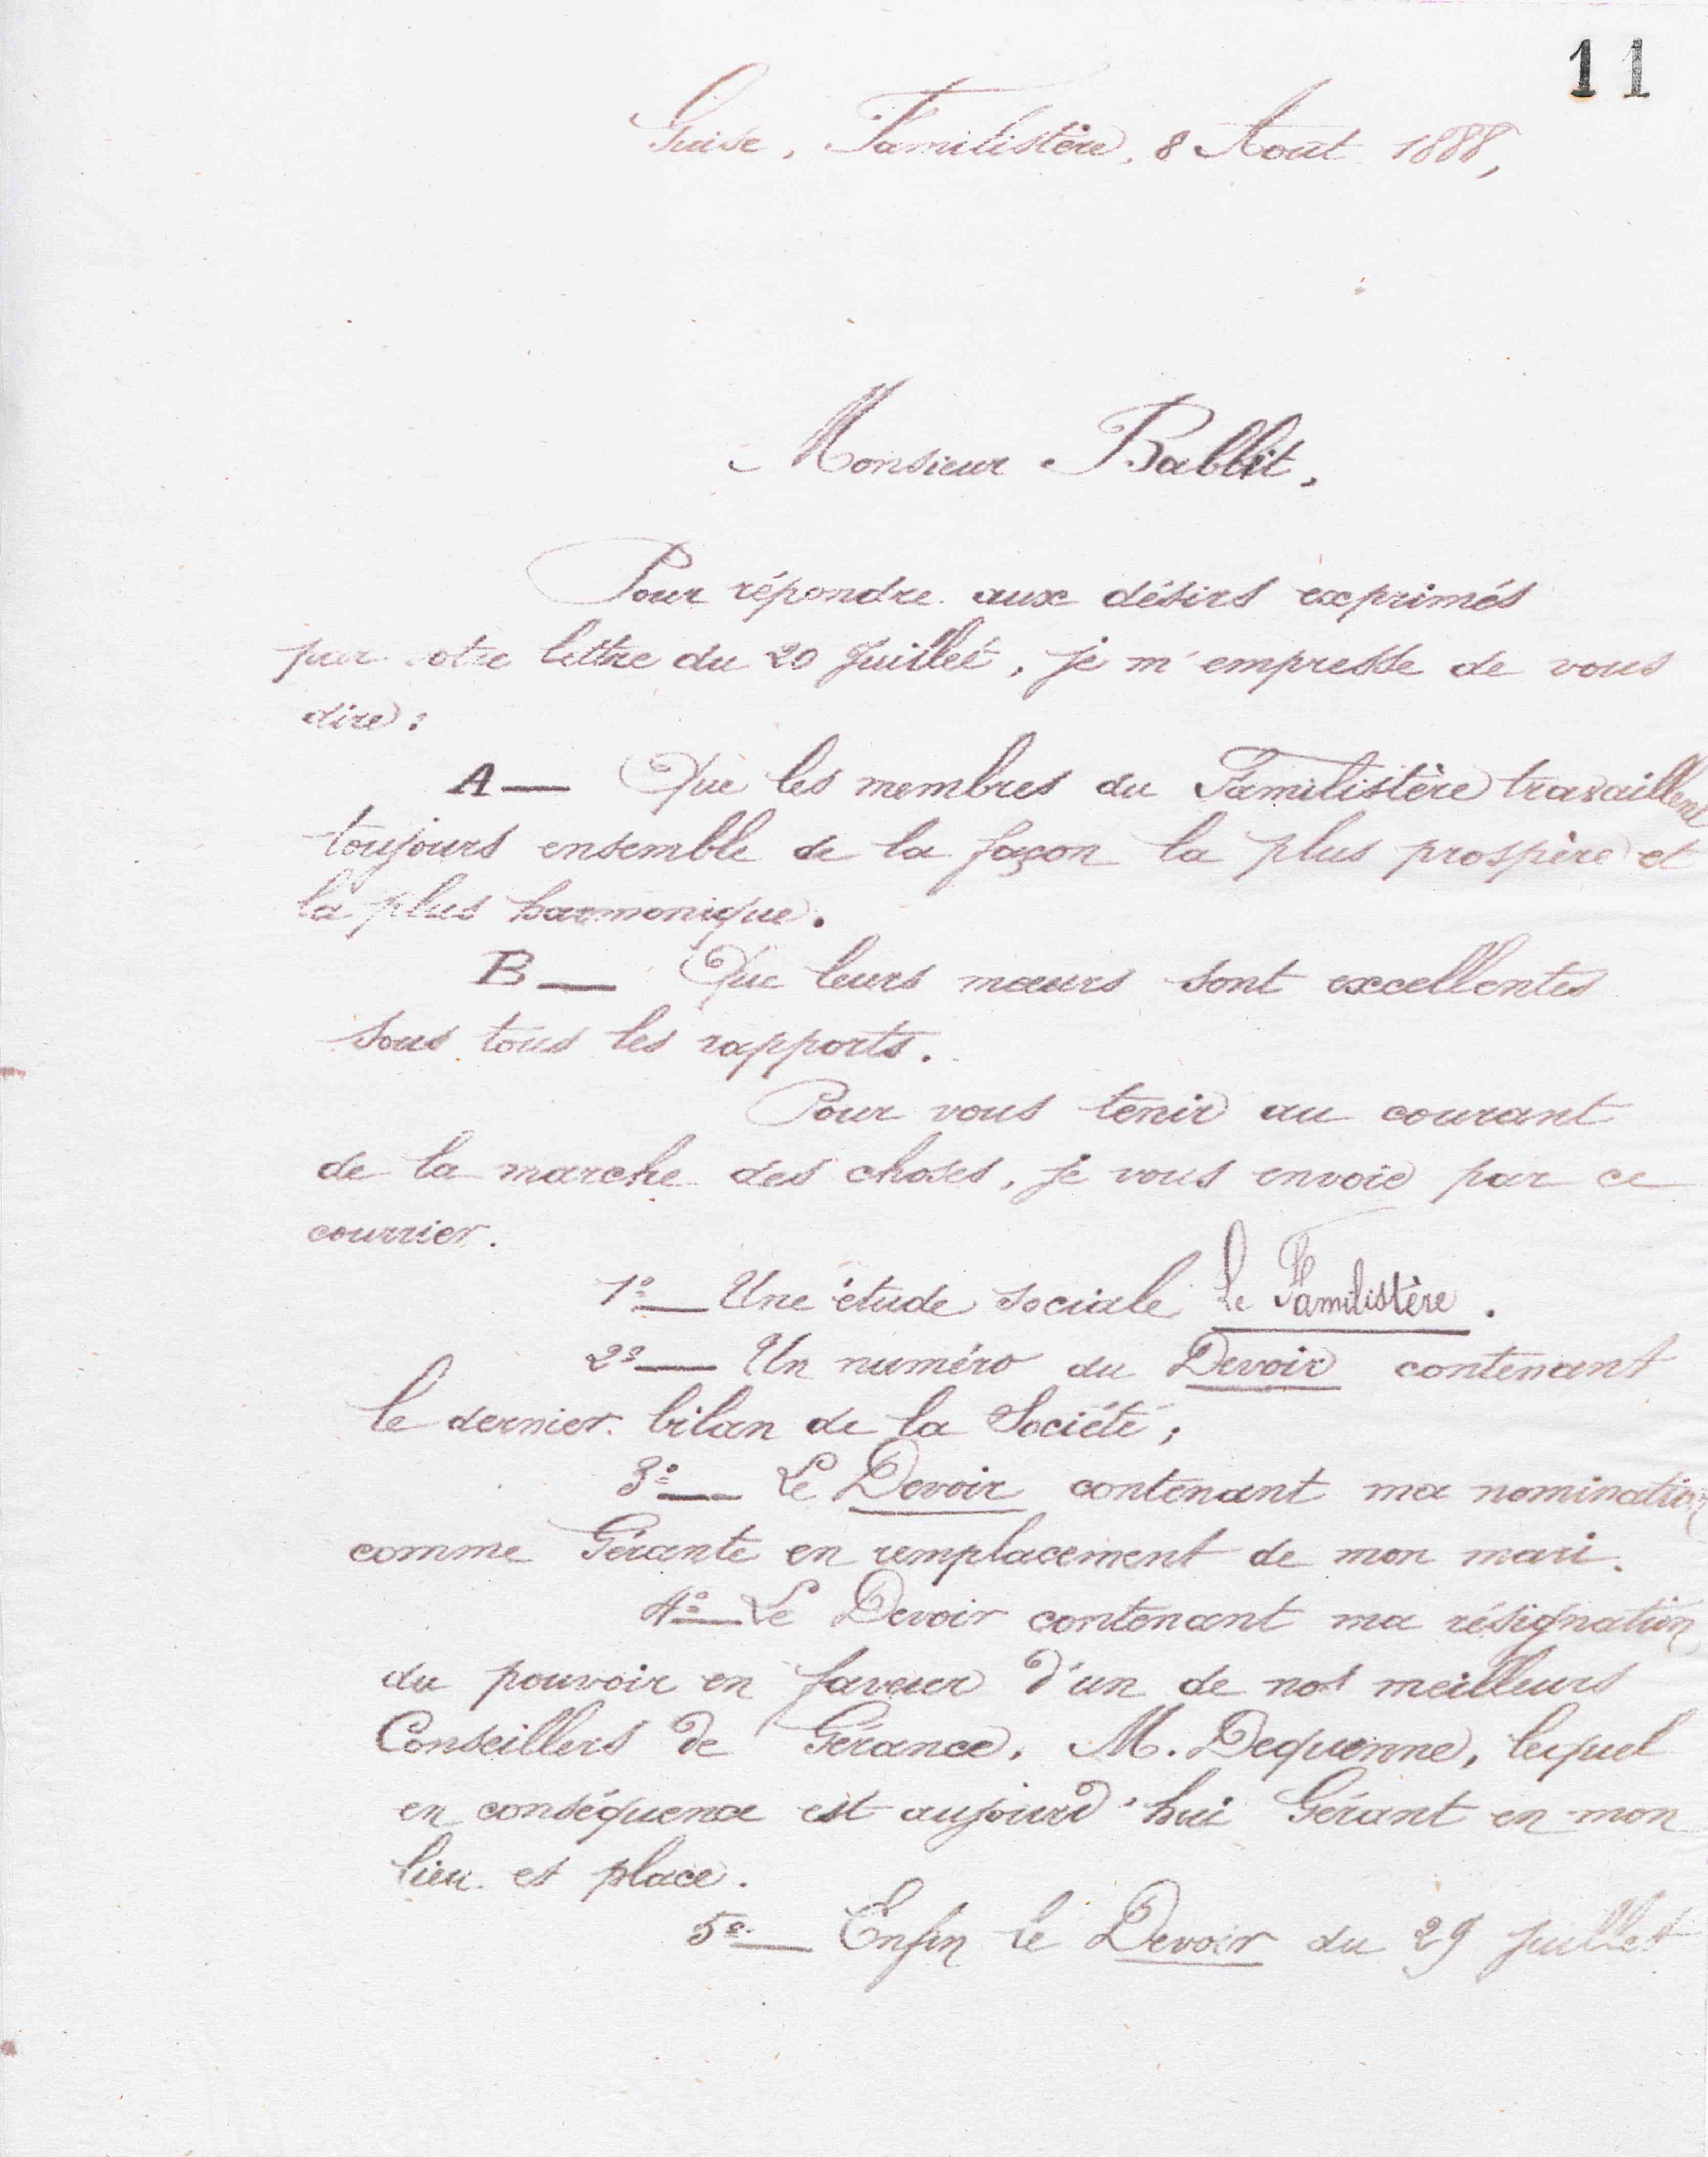 11
Guise, Familistère, 8 Aout 1888,
Monsieur Babbit,
Pour répondre aux désirs exprimés
par votre lettre du 20 Juillet, je m'empresse de vous
dire :
A — Que les membres du Familistère travaillent
toujours ensemble de la façon la plus prospère et
la plus harmonique.
B — Que leurs mœurs sont excellentes
sous tous les rapports.
Pour vous tenir au courant
de la marche des choses, je vous envoie par ce
courrier.
1º — Une étude sociale Le Familistère.
2º — Un numéro du Devoir contenant
le dernier bilan de la Société ;
3º — Le Devoir contenant ma nomination
comme Gérante en remplacement de mon mari.
4º — Le Devoir contenant ma résignation
du pouvoir en faveur d'un de nos meilleurs
Conseillers de Gérance, M. Dequenne, lequel
en conséquence est aujourd'hui Gérant en mon
lieu et place.
5º — Enfin le Devoir du 29 Juillet